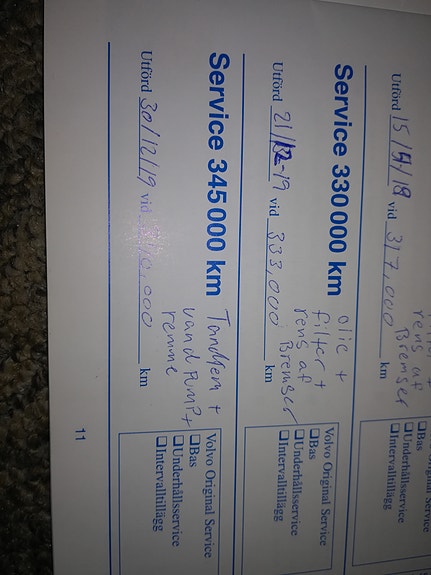 Utförd 15/5/18 vid 317,000 km
rens af
Bremser
❑Bas
❑Underhållsservice
❑Intervalltillägg
Service 330 000 km
olie +
filter +
rens af
Bremser
Utförd 21/12-19 vid 333,000 km
Volvo Original Service
❑Bas
❑Underhållsservice
❑Intervalltillägg
Service 345 000 km
Tandrem +
vand pump +
remme
Utförd 30/12/19 vid 340,000 km
Volvo Original Service
❑Bas
❑Underhållsservice
❑Intervalltillägg
11